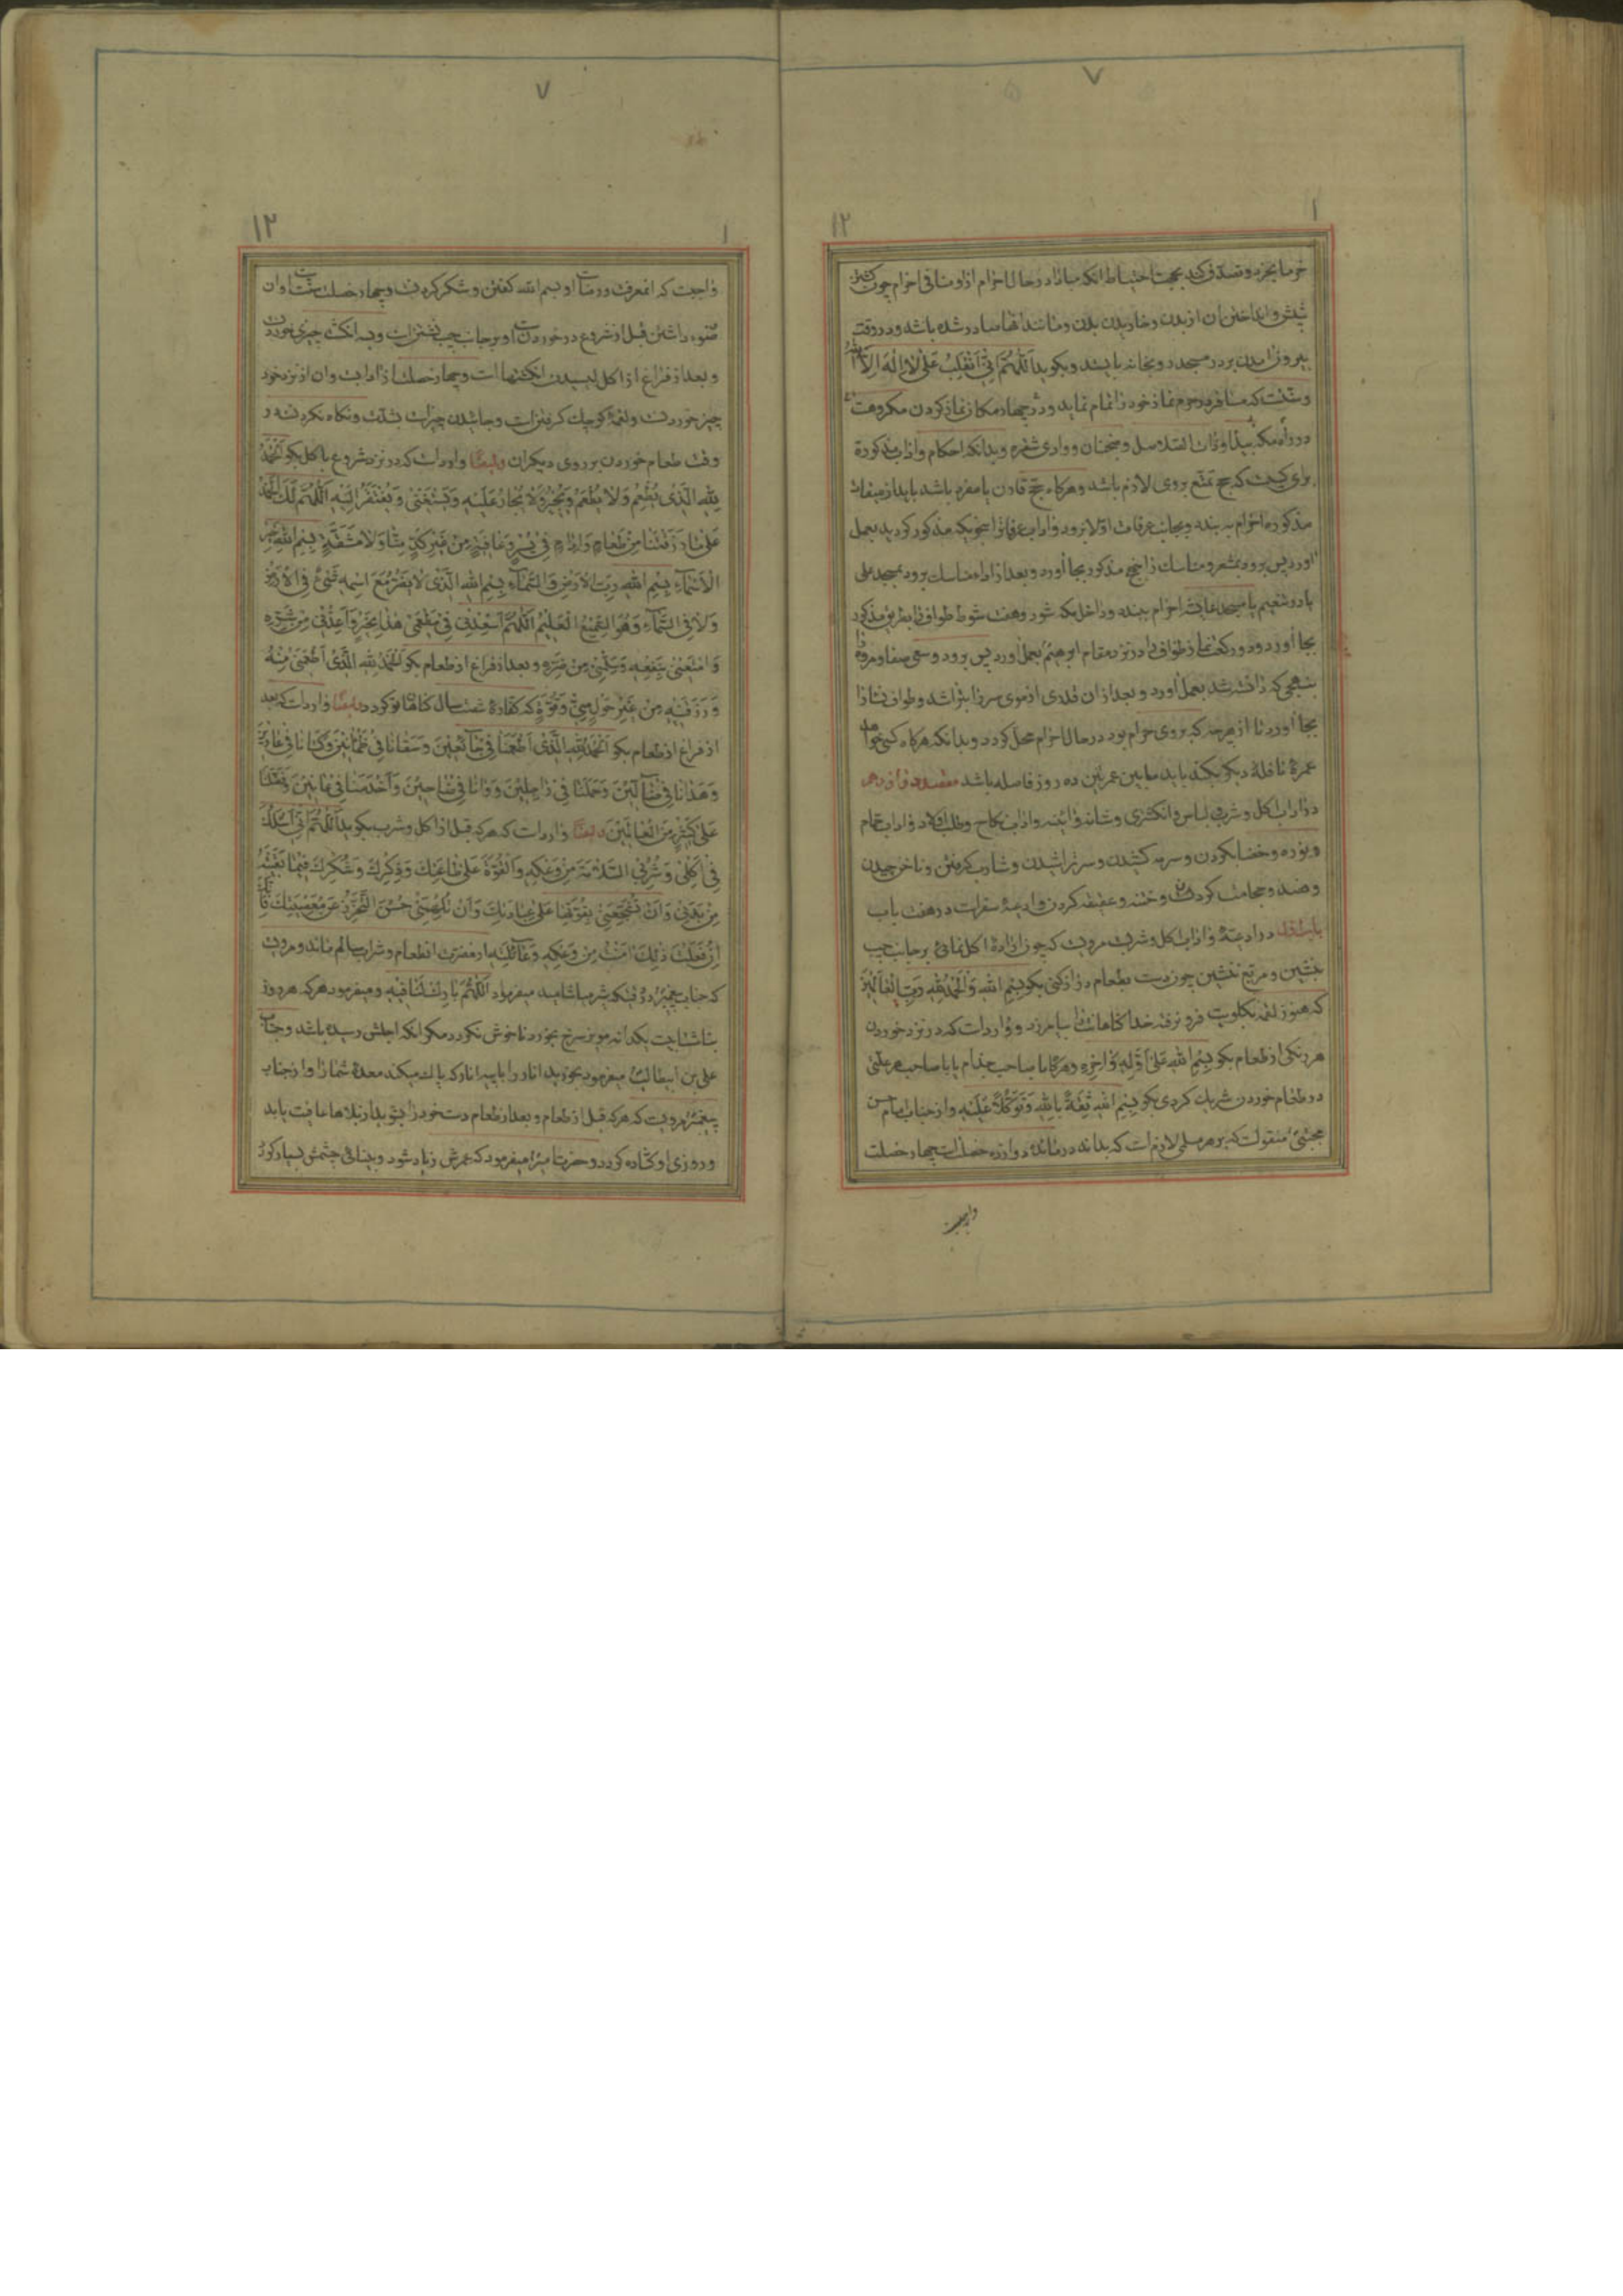 ٧
١
١٢
خرما بخرد و تصدق کند بجهت احتیاط انکه مبادا در حال احرام ازو منافی احرام چون کشتن
شپش و انداختن ان از بدن و خاریدن بدن و مانند انها صادر شده باشد و در وقت
بیرون امدن بر در مسجد رو بخانه بایستد و بکوید اَللّٰهُمَّ اِنّی اَنْقَلِبُ عَلیٰ لا اِلٰهَ اِلَّا اللهُ
و سنت که مسافر در حرم نماز خود را تمام نماید و در چهار مکان نماز کردن مکروهست
در راه مکه بیدا و ذات السلاسل و ضجنان و وادی شقره و بدانکه احکام و اداب مذکوره
برای کسیست که حج تمتع بروی لازم باشد و هرکاه حج قارن یا مفرد باشد باید از میقات
مذکوره احرام به بندد و بجانب عرفات اولا برود و اداب عرفات را بنحویکه مذکور کردید بعمل
اورد پس برود بمشعر و مناسک را بنهج مذکور بجا اورد و بعد از اداء مناسک برود بمسجد علی
یا روشعیم یا مسجد عایشه احرام ببندد و داخل مکه شود و هفت شوط طواف را بطریق مذکور
بجا اورد و دو رکعت نماز طواف را در نزد مقام ابرهیم بعمل اورد پس برود و سعی صفا و مروه را
بنهجی که دانسته شد بعمل اورد و بعد از ان قدری از موی سر را بتراشد و طواف نسا را
بجا اورد تا از هر چه که بروی حرام بود در حال احرام محل کردد و بدانکه هرکاه کسی خواهد
عمرهٔ نافلهٔ دیکر بکند باید ما بین عمرتین ده روز فاصله باشد مقصد دوازدهم
در اداب اکل و شرب و لباس و انکشتری و شانه و ائینه و اداب نکاح و طلب اولاد و اداب حمام
و نوره و خضاب کردن و سرمه کشیدن و سر تراشیدن و شارب کرفتن و ناخن چیدن
و فصد و حجامت کردن و ختنه و عقیقه کردن و ادعیهٔ سفرات در هفت باب
باب اول در ادعیهٔ و اداب اکل و شرب مرویست که چون ارادهٔ اکل نمائی بر جانب چپ
بنشین و مربع ننشین چون دست بطعام دراز کنی بکو بِسْمِ اللهِ وَالْحَمْدُ لِلّٰهِ رَبِّ الْعالَمینَ
که هنوز لقمه بکلویت فرو نرفته خدا کناهانت را بیامرزد و وارد است که در نزد خوردن
هر رنکی از طعام بکو بِسْمِ اللهِ عَلیٰ اَوَّلِهِ وَاٰخِرِهِ و هرکاه با صاحب جذام یا با صاحب هر علتی
در طعام خوردن شریک کردی بکو بِسْمِ اللهِ ثِقَةً بِاللهِ وَتَوَکُّلاً عَلَیْهِ و از جناب امام حسن
مجتبی منقولست که بر هر مسلمی لازم است که بداند در مائده دوازده خصلت چهار خصلت
واجبست
٧
١
١٢
واجبست که ان معرفت و رضاست و بسم الله کفتن و شکر کردنست و چهار خصلت سنت است و ان
وضوء داشتن قبل از شروع در خوردنست و بر جانب چپ نشستن است و بسه انکشت چیزی خوردن
و بعد از فراغ از اکل لیسیدن انکشتهاست و چهار خصلت از ادابست و ان از نزد خود
چیز خوردنست و لقمهٔ کوچک کرفتن است و جائیدن چیز است بشدت و نکاه نکردنست در
وقت طعام خوردن بر روی دیکران و ایضًا وارد است که در نزد شروع باکل بکو اَلْحَمْدُ
لِلّٰهِ الَّذی یُطْعِمُ وَلا یُطْعَمُ وَیُجیرُ وَلا یُجارُ عَلَیْهِ وَیَسْتَغْنی وَیُفْتَقَرُ اِلَیْهِ اَللّٰهُمَّ لَکَ الْحَمْدُ
عَلیٰ ما رَزَقْتَنا مِنْ طَعامٍ وَاِدامٍ فی یُسْرٍ وَعافِیَةٍ مِنْ غَیْرِ کَدٍّ مِنّا وَلا مَشَقَّةٍ بِسْمِ اللهِ خَیْرِ
الْاَسْماءِ بِسْمِ اللهِ رَبِّ الْاَرْضِ وَالسَّماءِ بِسْمِ اللهِ الَّذی لا یَضُرُّ مَعَ اسْمِهِ شَیْئٌ فِی الْاَرْضِ
وَلا فِی السَّماءِ وَهُوَ السَّمیعُ الْعَلیمُ اَللّٰهُمَّ اَسْعِدْنی فی مَطْعَمی هٰذا بِخَیْرِهِ وَاَعِذْنی مِنْ شَرِّهِ
وَاَمْتِعْنی بِنَفْعِهِ وَسَلِّمْنی مِنْ ضَرِّهِ و بعد از فراغ از طعام بکو اَلْحَمْدُ لِلّٰهِ الَّذی اَطْعَمَنی مِنْهُ
وَرَزَقَنیهِ مِنْ غَیْرِ حَوْلٍ مِنّی وَقُوَّةٍ که کفارهٔ شصت سال کناهان تو کردد و ایضًا وارد است که بعد
از فراغ از طعام بکو اَلْحَمْدُ لِلّٰهِ الَّذی اَطْعَمَنا فی جائِعینَ وَسَقانا فی ظَمْاٰنینَ وَکَسانا فی عارینَ
وَهَدانا فی ضالّینَ وَحَمَلَنا فی راجِلینَ وَاٰوانا فی ضاحِینَ وَاَخْدَمَنا فی عانینَ وَفَضَّلَنا
عَلیٰ کَثیرٍ مِنَ الْعالَمینَ و ایضًا وارد است که هرکه قبل از اکل و شرب بکوید اَللّٰهُمَّ اِنّی اَسْئَلُکَ
فی اَکْلی وَشُرْبی السَّلامَةَ مِنْ وَعْکِهِ وَالْقُوَّةَ عَلیٰ طاعَتِکَ وَذِکْرِکَ وَشُکْرِکَ فیما بَقَّیْتَهُ
مِنْ بَدَنی وَاَنْ تُشَجِّعَنی بِقُوَّتِها عَلیٰ عِبادَتِکَ وَاَنْ تُلْهِمَنی حُسْنَ التَّحَرُّزِ عَنْ مَعْصِیَتِکَ فَاِنَّکَ
اِنْ فَعَلْتَ ذٰلِکَ اَمِنْتُ مِنْ وَعْکِهِ وَغائِلَتِهِ از مضرت ان طعام و شراب سالم ماند و مرویست
که جناب پیغمبر در وقتیکه شیر میاشامید میفرمود اَللّٰهُمَّ بارِکْ لَنا فیهِ و میفرمود هرکه هر روز
بناشتا بیست یکدانه مویز سرخ بخورد ناخوش نکردد مکر انکه اجلش رسیده باشد و جناب
علی بن ابیطالب میفرمود بخورید انار را با پیه انار که پاک میکند معدهٔ شما را و از جناب
پیغمبر مرویست که هرکه قبل از طعام و بعد از طعام دست خود را بشوید از بلاها عافیت یابد
و روزی او کشاده کردد و حضرت امیر میفرمود که عمرش زیاد شود و بینائی چشمش بسیار کردد